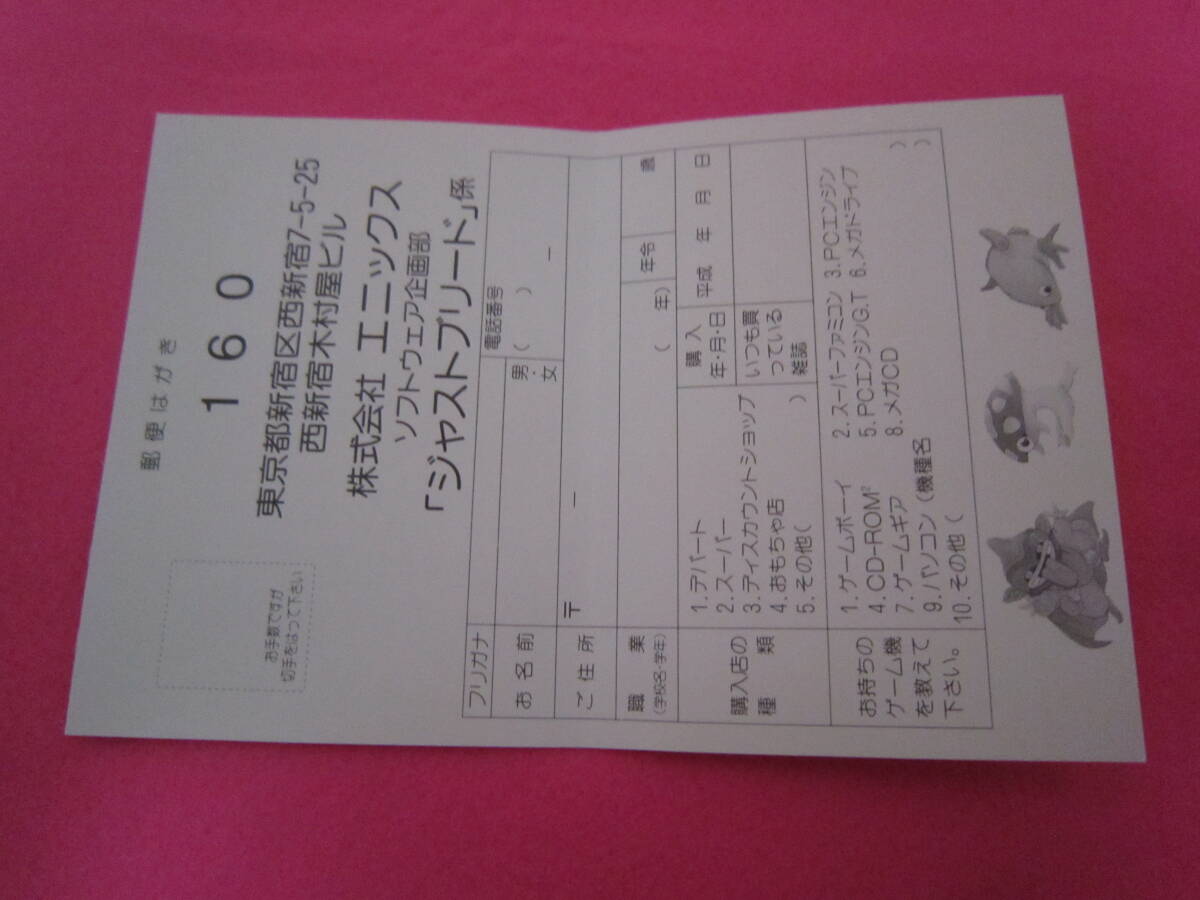 郵便はがき
160
お手数ですが
切手をはって下さい
東京都新宿区西新宿7-5-25
西新宿木村屋ビル
株式会社 エニックス
ソフトウェア企画部
「ジャストブリード」係
フリガナ
お名前
男・女
電話番号
( ) －
ご住所
〒 －
職業
(学校名・学年)
( 年)
年令
歳
購入店の
種類
1.デパート
2.スーパー
3.ディスカウントショップ
4.おもちゃ店
5.その他( )
購入
年・月・日
平成 年 月 日
いつも買
っている
雑誌
お持ちの
ゲーム機
を教えて
下さい。
1.ゲームボーイ 2.スーパーファミコン 3.PCエンジン
4.CD-ROM² 5.PCエンジンG.T 6.メガドライブ
7.ゲームギア 8.メガCD
9.パソコン(機種名 )
10.その他( )